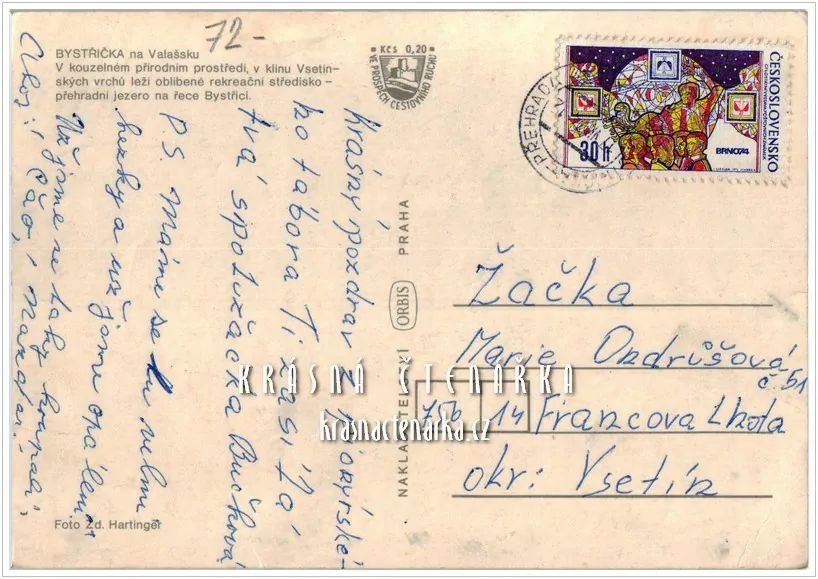 72-
BYSTŘIČKA na Valašsku
V kouzelném přírodním prostředí, v klínu Vsetín-
ských vrchů leží oblíbené rekreační středisko –
přehradní jezero na řece Bystřici.
Kčs 0,20
VE PROSPĚCH CESTOVNÍHO RUCHU
ČESKOSLOVENSKO
BRNO74
30 h
PŘEHRADA
Krásný pozdrav z pionýrské-
ho tábora Ti zasílá
tvá spolužačka Bučková
P.S. Máme se tu velmi
hezky a už jsme opálení.
Už jsme se taky koupali,
Ahoj! Čáo, Nazdar!
NAKLADATELSTVÍ ORBIS PRAHA
Žačka
Marie Ondrůšová
č. 51
756 14 Francova Lhota
okr: Vsetín
Foto Zd. Hartinger
KRÁSNÁ ČTENÁŘKA
krasnactenarka.cz